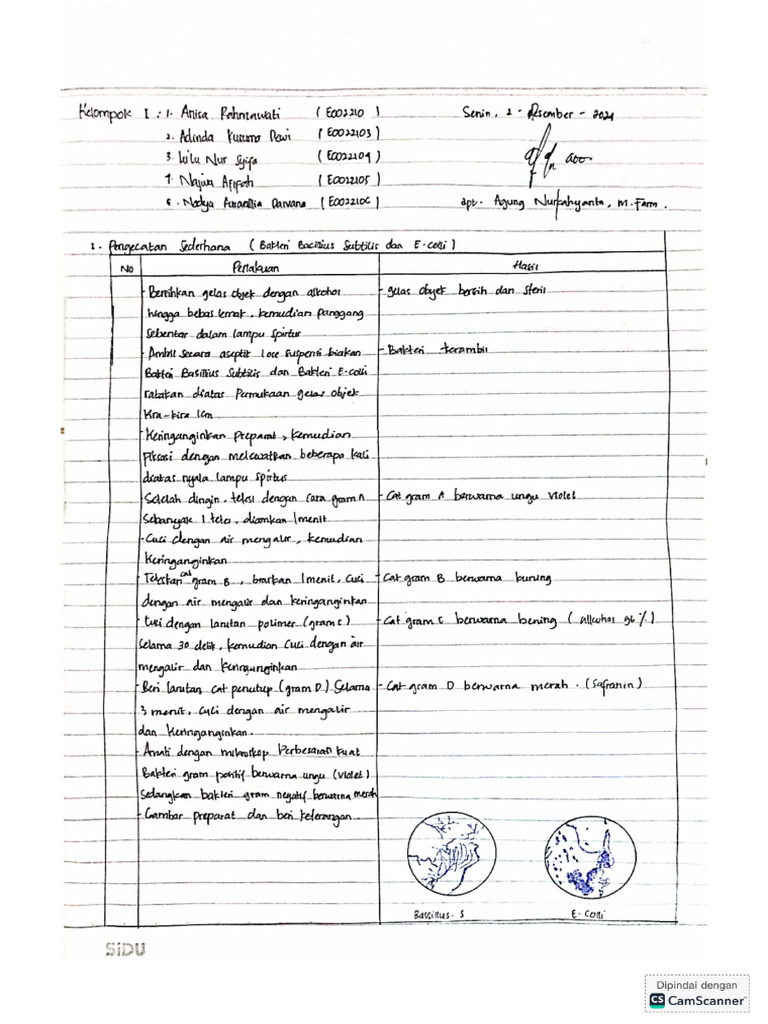 Kelompok I : 1. Anisa Rahmawati ( E002210 ) Senin, 2 - Desember - 2024
2. Adinda Kusuma Dewi ( E0022103 )
3. Lulu Nur Syifa ( E0022104 ) acc
4. Najwa Afifah ( E0022105 )
5. Nadya Auraellia Darvana ( E0022106 ) apt. Agung Nurcahyanta, M.Farm.
1. Pengecatan Sederhana ( Bakteri Bacillus Subtilis dan E-colli )
No Perlakuan Hasil
- Bersihkan gelas objek dengan alkohol - gelas objek bersih dan steril
hingga bebas lemak, kemudian panggang
sebentar dalam lampu spirtus
- Ambil secara aseptik 1 ose suspensi biakan - Bakteri terambil
Bakteri Basillius Subtilis dan Bakteri E-colli
ratakan diatas Permukaan gelas objek
Kira-kira 1cm
- Keringanginkan preparat, kemudian
fiksasi dengan melewatkan beberapa kali
diatas nyala lampu spirtus
- Setelah dingin, tetesi dengan cara gram A - Cat gram A berwarna ungu violet
Sebanyak 1 tetes, diamkan 1 menit
- Cuci dengan air mengalir, kemudian
Keringanginkan
- Teteskan cat gram B, biarkan 1 menit, cuci - Cat gram B berwarna kuning
dengan air mengalir dan keringanginkan
- Cuci dengan larutan polimer (gram C) - Cat gram C berwarna bening ( allkohol 96 % )
selama 30 detik, kemudian cuci dengan air
mengalir dan keringanginkan
- Beri larutan cat penutup (gram D) Selama - Cat gram D berwarna merah . (Safranin)
3 menit, cuci dengan air mengalir
dan keringanginkan.
- Amati dengan mikroskop Perbesaran kuat
Bakteri gram positif berwarna ungu (violet)
Sedangkan bakteri gram negatif berwarna merah
- Gambar preparat dan beri keterangan
Bassillus. S E. Colli
SiDU
Dipindai dengan
CS CamScanner